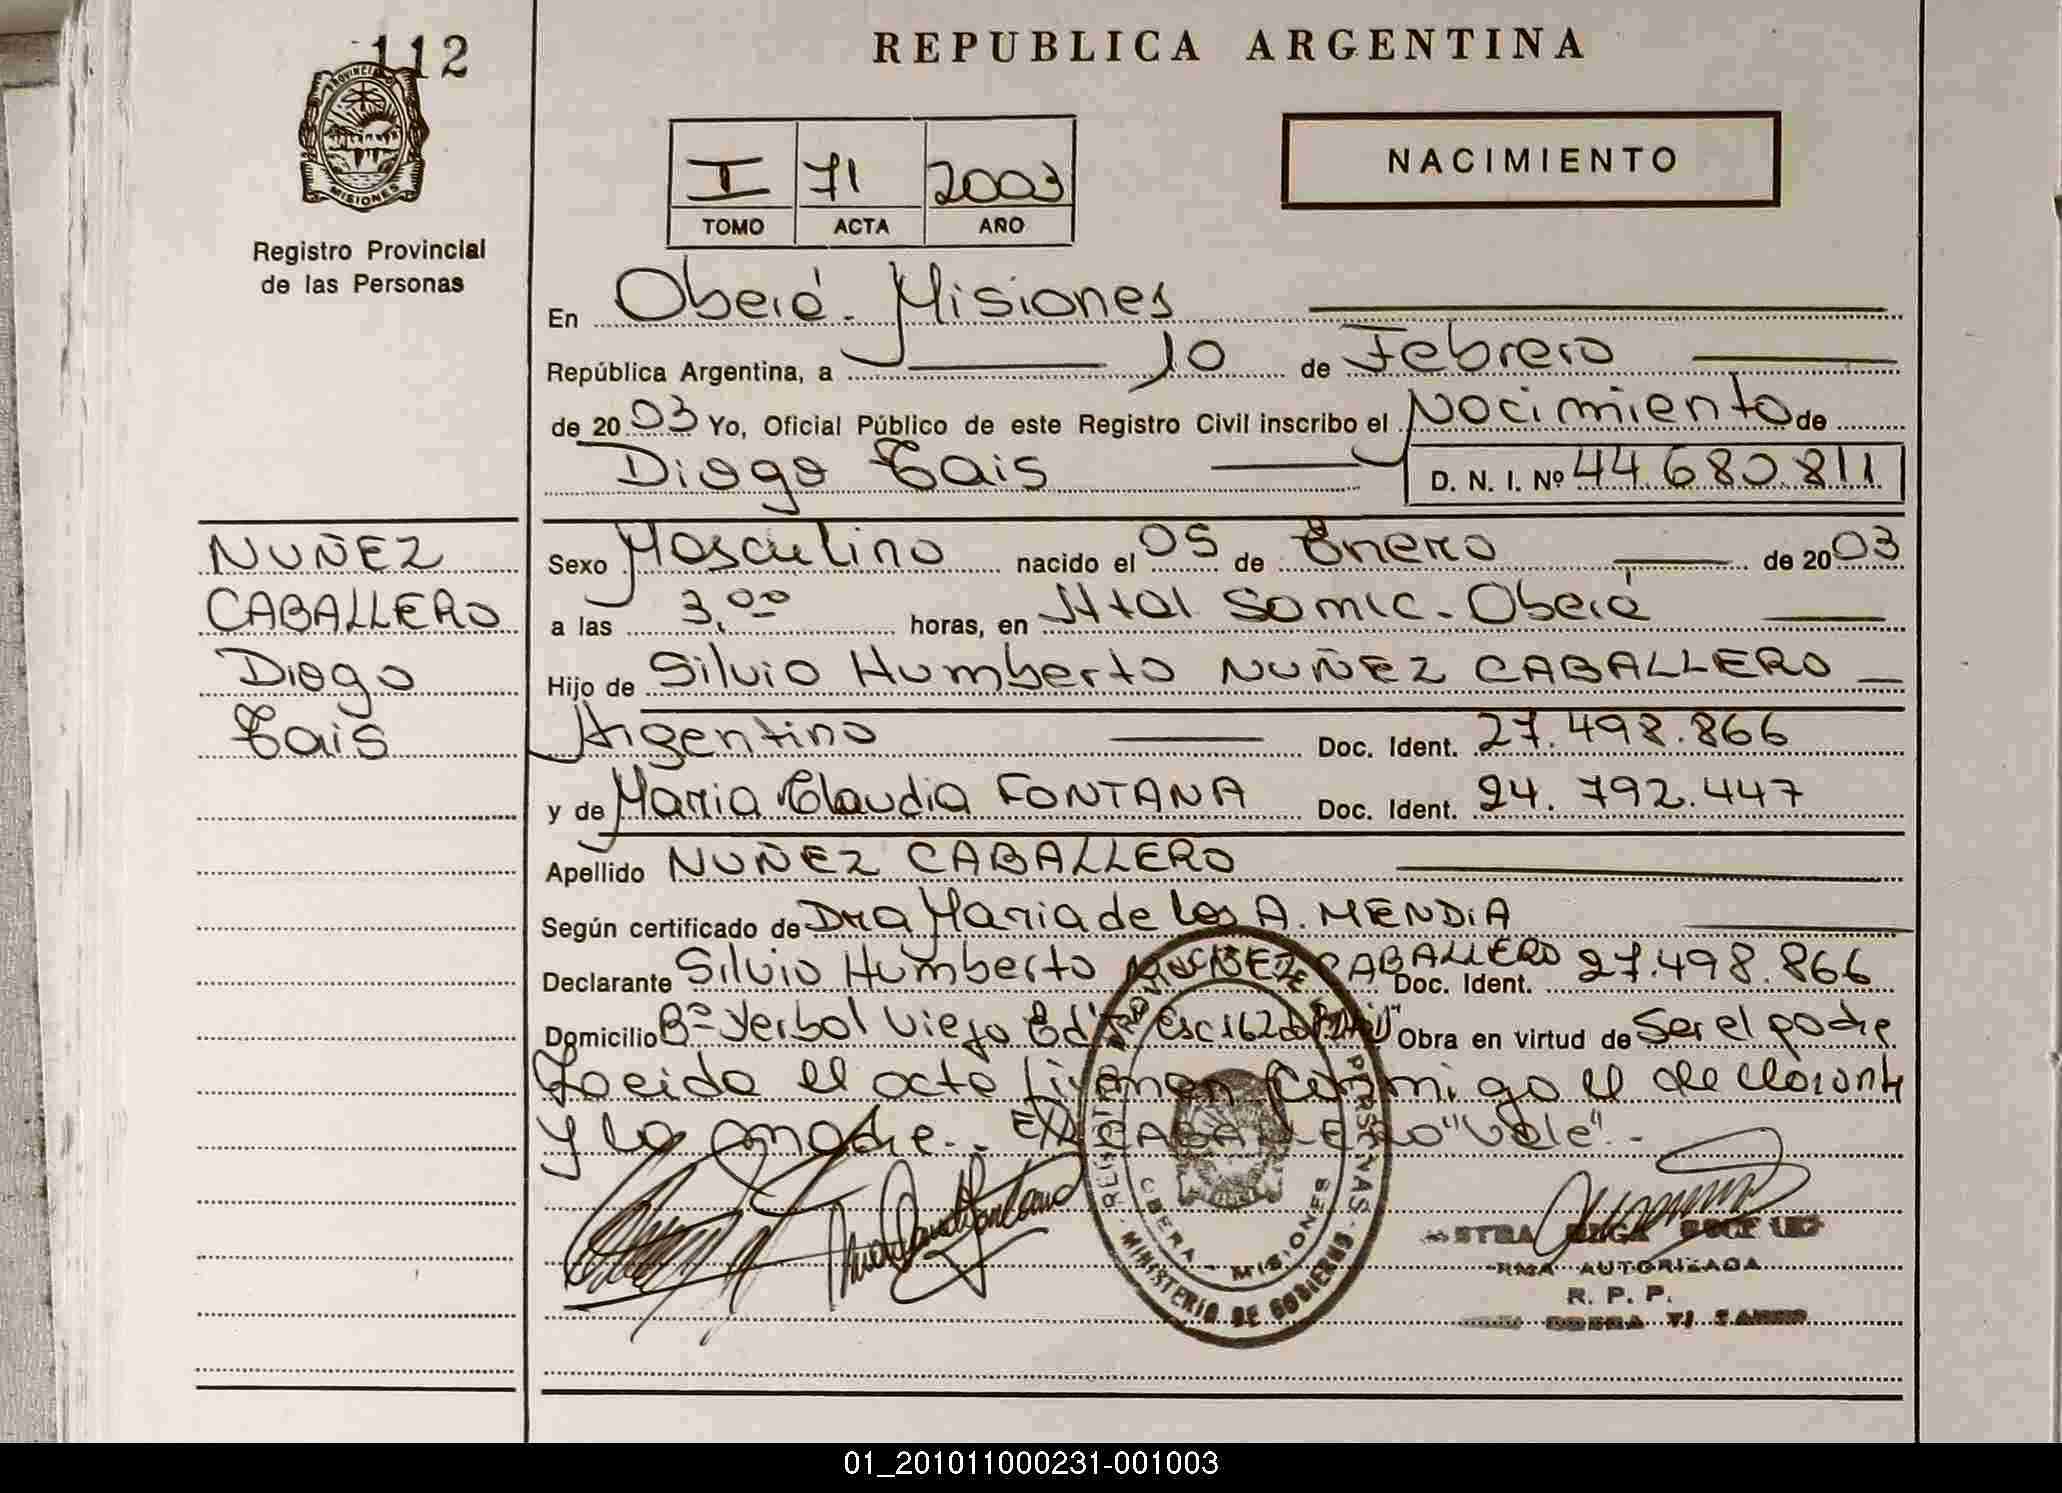 112
REPUBLICA ARGENTINA
PROVINCIA DE
MISIONES
Registro Provincial
de las Personas
I 71 2003
TOMO ACTA AÑO
NACIMIENTO
En Oberá - Misiones
República Argentina, a 10 de Febrero
de 2003 Yo, Oficial Público de este Registro Civil inscribo el Nacimiento de
Diago Tais D. N. I. Nº 44.680.811
NUÑEZ
CABALLERO
Diago
Tais
Sexo Masculino nacido el 05 de Enero de 2003
a las 3,00 horas, en Htal Samic - Oberá
Hijo de Silvio Humberto NUÑEZ CABALLERO
Argentino Doc. Ident. 27.498.866
y de Maria Claudia FONTANA Doc. Ident. 24.792.447
Apellido NUÑEZ CABALLERO
Según certificado de Dra Maria de los A. MENDiA
Declarante Silvio Humberto NUÑEZ CABALLERO Doc. Ident. 27.498.866
Domicilio Bº Yerbal Viejo Ed Esc 162 Obra en virtud de Ser el padre
Leida el acta firman conmigo el declarante
y la madre.. E/L CABALLERO "Vale".-
OBERA - MISIONES
MINISTERIO DE GOBIERNO
AUTORIZADA
R. P. P.
01_201011000231-001003